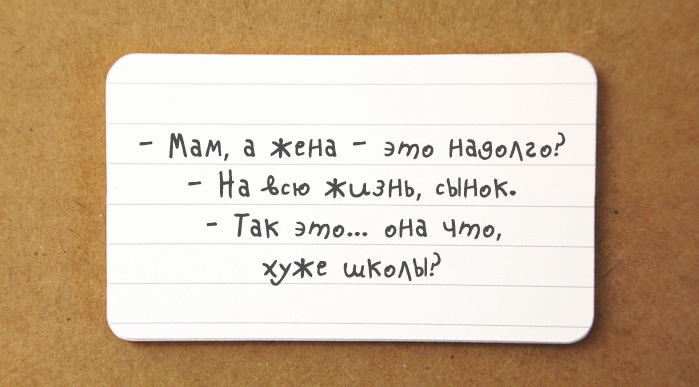 - Мам, а жена - это надолго?
- На всю жизнь, сынок.
- Так это... она что,
хуже школы?